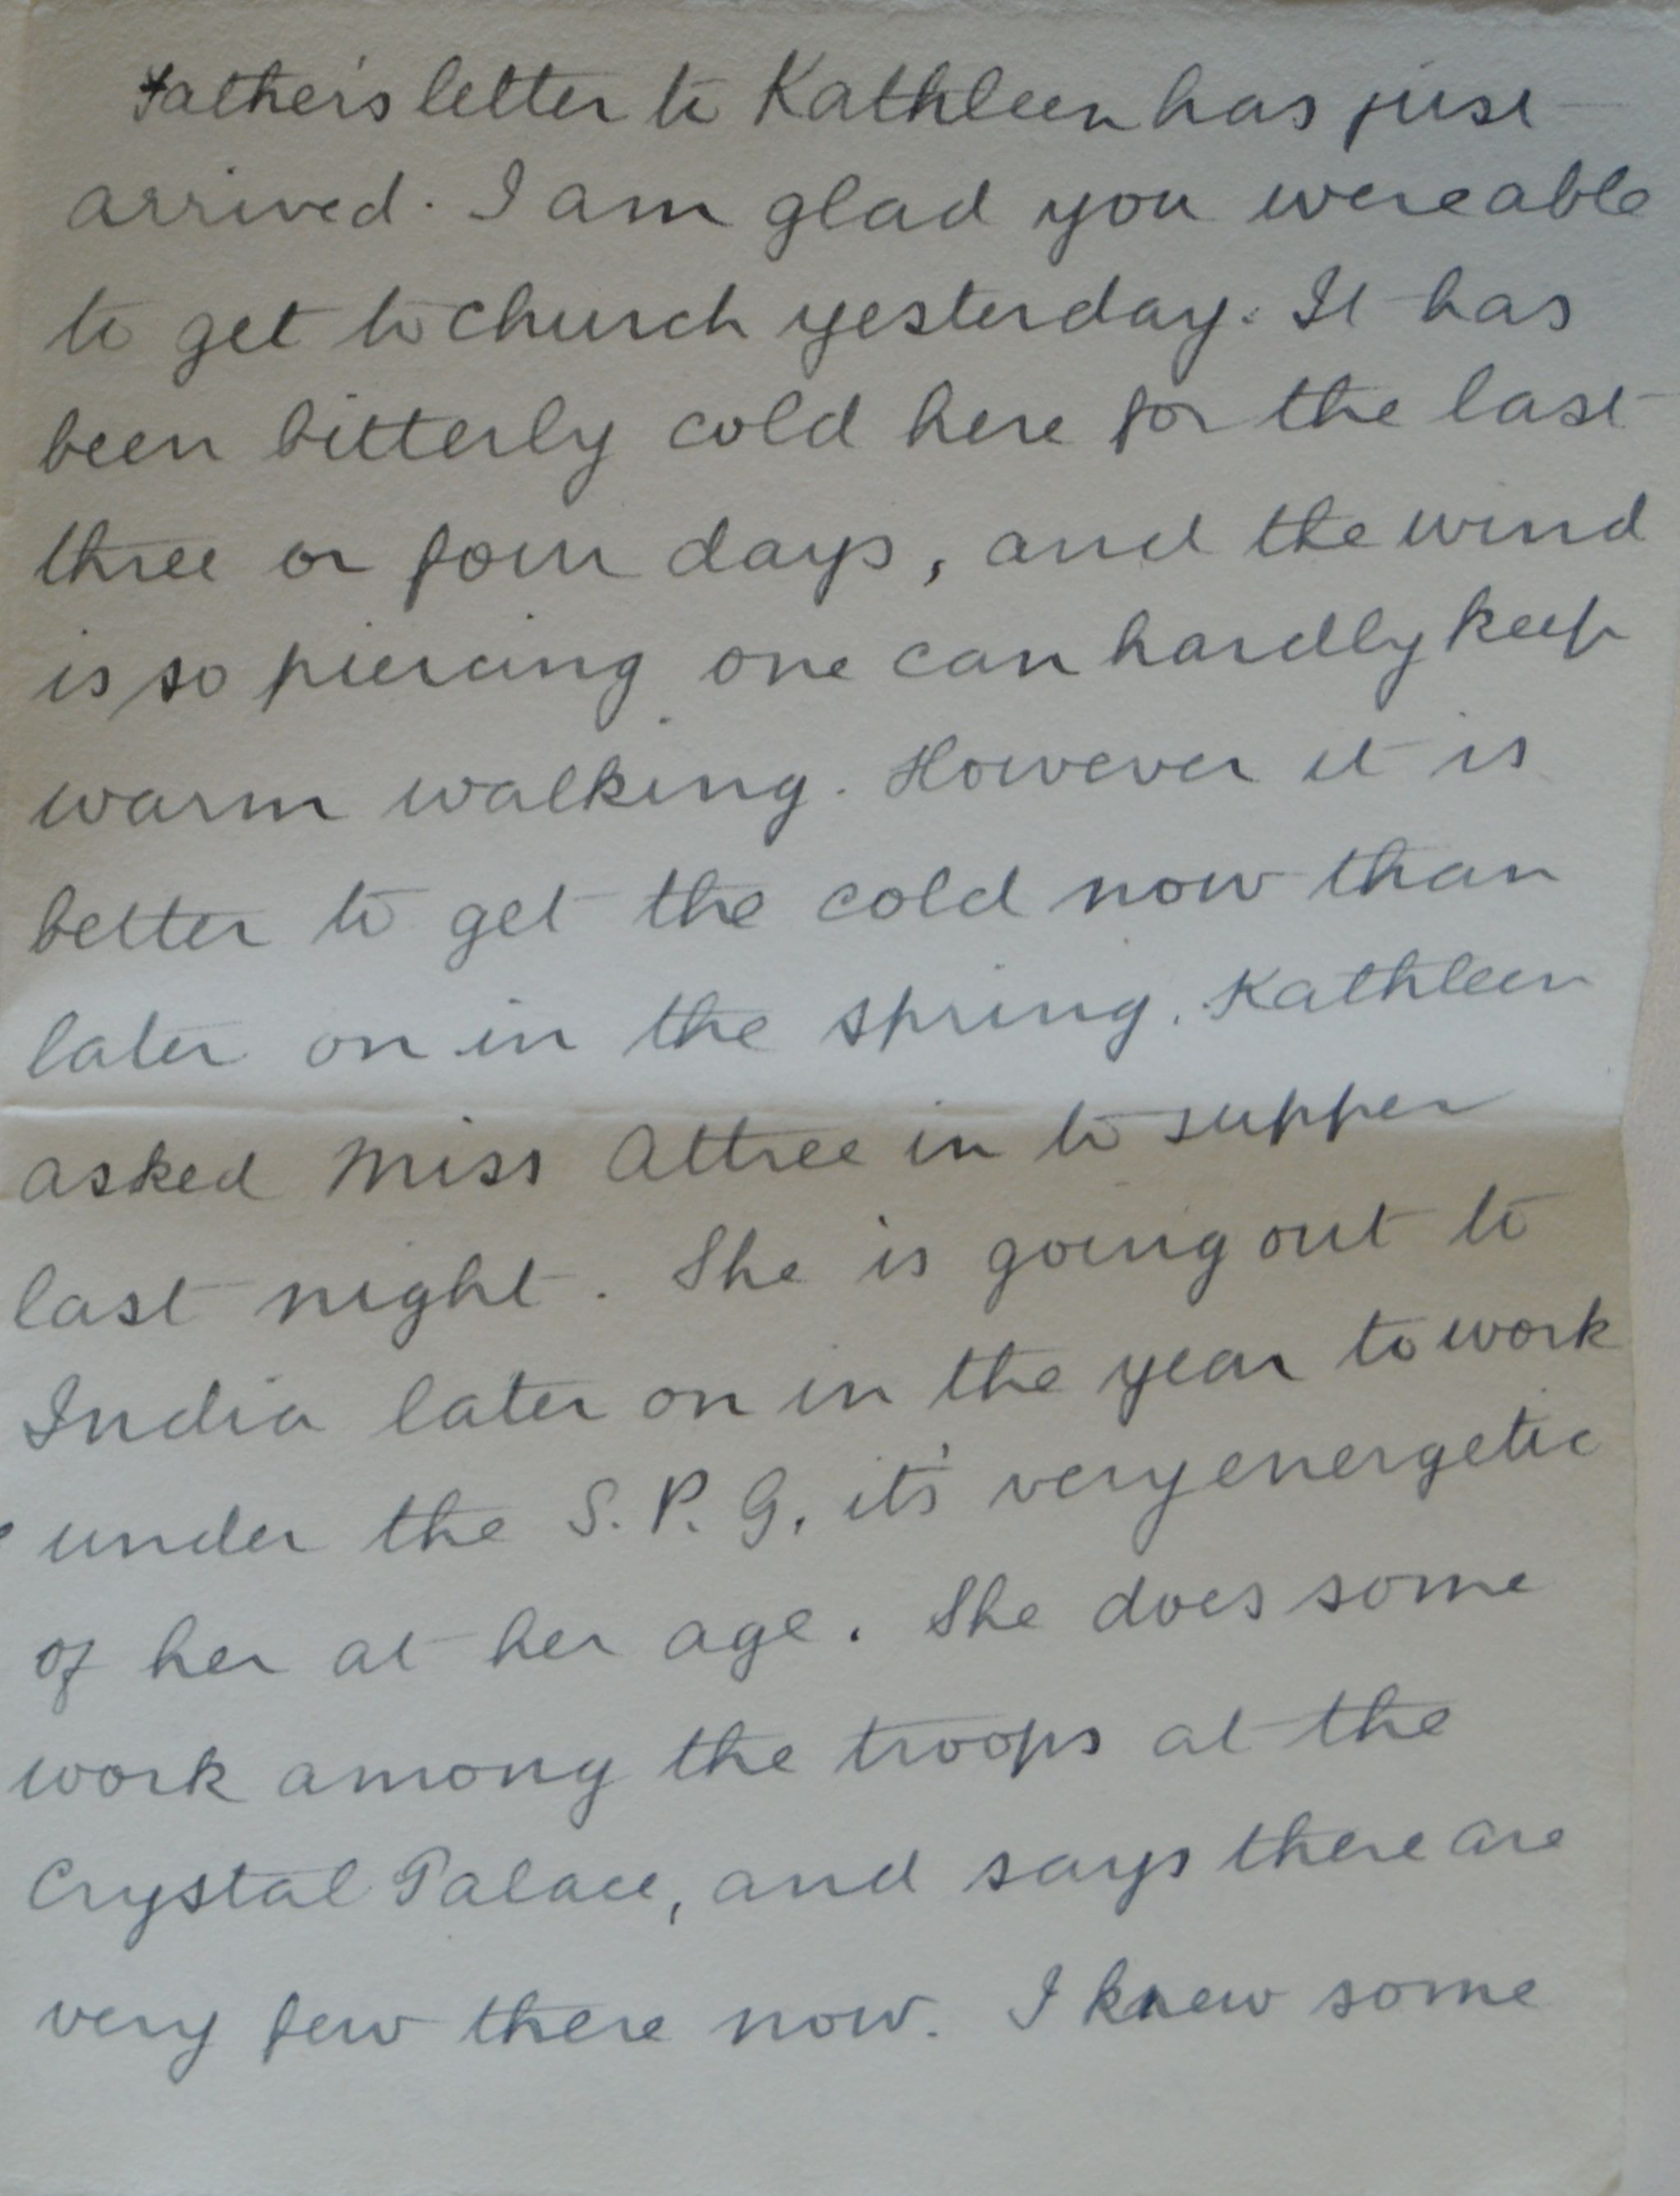 Father's letter to Kathleen has just
arrived. I am glad you were able
to get to church yesterday. It has
been bitterly cold here for the last
three or four days, and the wind
is so piercing one can hardly keep
warm walking. However it is
better to get the cold now than
later on in the spring. Kathleen
asked Miss Attree in to supper
last night. She is going out to
India later on in the year to work
under the S. P. G, it's very energetic
of her at her age. She does some
work among the troops at the
Crystal Palace, and says there are
very few there now. I knew some